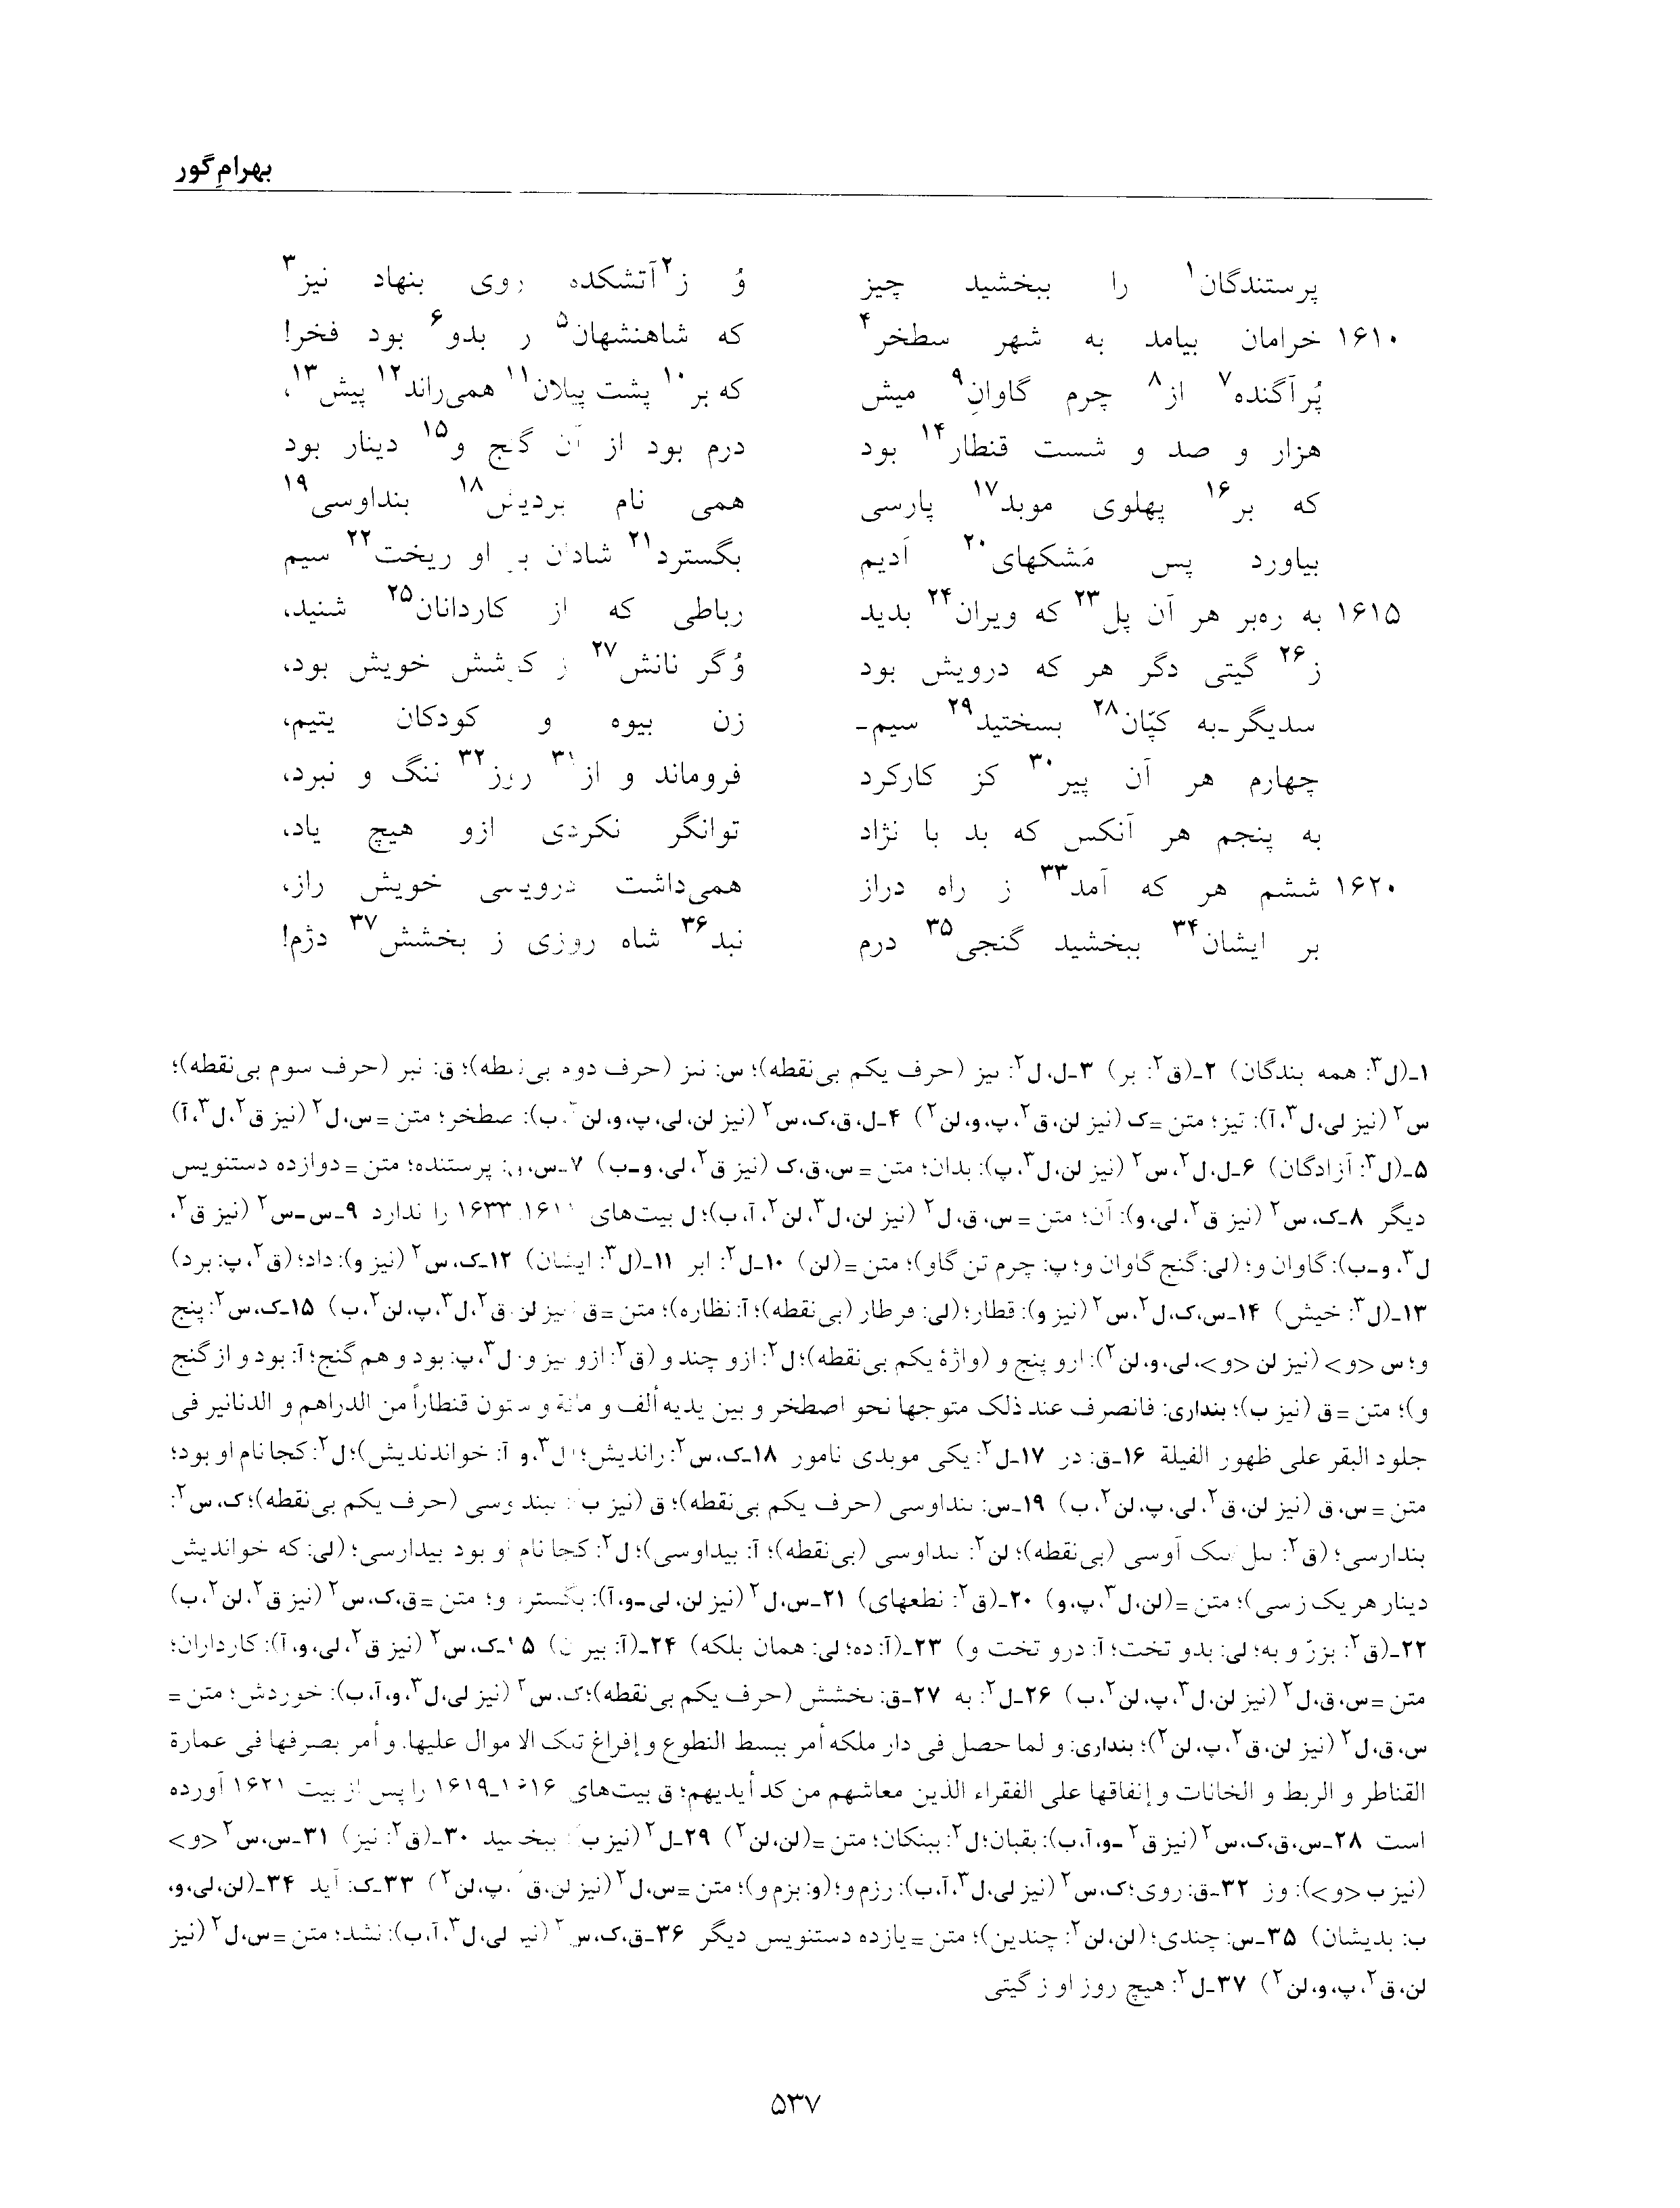 بهرامِ گور
پرستندگان۱ را ببخشید چیز وُ ز۲ آتشکده روی بنهاد نیز۳
۱۶۱۰ خرامان بیامد به شهر سطخر۴ که شاهنشهان۵ را بدو۶ بود فخر!
پُرآگنده۷ از۸ چرم گاوانِ۹ میش که بر۱۰ پشت پیلان۱۱ همی‌راند۱۲ پیش۱۳،
هزار و صد و شست قنطار۱۴ بود درم بود از آن گنج و۱۵ دینار بود
که بر۱۶ پهلوی موبد۱۷ پارسی همی نام بردیش۱۸ بنداوسی۱۹
بیاورد پس مَشکهای۲۰ اَدیم بگسترد۲۱ شادان بر او ریخت۲۲ سیم
۱۶۱۵ به ره‌بر هر آن پل۲۳ که ویران۲۴ بدید رباطی که از کاردانان۲۵ شنید،
ز۲۶ گیتی دگر هر که درویش بود وُگر نانش۲۷ ز کوشش خویش بود،
سدیگر ـ‌به کپّان۲۸ بسختید۲۹ سیم‌ـ زن بیوه و کودکان یتیم،
چهارم هر آن پیر۳۰ کز کارکرد فروماند و از۳۱ روز۳۲ ننگ و نبرد،
به پنجم هر آنکس که بد با نژاد توانگر نکردی ازو هیچ یاد،
۱۶۲۰ ششم هر که آمد۳۳ ز راه دراز همی‌داشت درویسی خویش راز،
بر ایشان۳۴ ببخشید گنجی۳۵ درم نبد۳۶ شاه روزی ز بخشش۳۷ دژم!
۱ـ(ل۳: همه بندگان) ۲ـ(ق۲: بر) ۳ـ‌ل، ل۲: ىیز (حرف یکم بی‌نقطه)؛ س: نىز (حرف دوم بی‌نقطه)؛ ق: نیر (حرف سوم بی‌نقطه)؛
س۲ (نیز لی، ل۳، آ): تیز؛ متن = ک (نیز لن، ق۲، پ، و، لن۲) ۴ـ‌ل، ق، ک، س۲ (نیز لن، لی، پ، و، لن۲، ب): صطخر؛ متن = س، ل۲ (نیز ق۲، ل۳، آ)
۵ـ(ل۳: آزادگان) ۶ـ‌ل، ل۲، س۲ (نیز لن، ل۳، پ): بدان؛ متن = س، ق، ک (نیز ق۲، لی، و‌ـ‌ب) ۷ـ‌س، و: پرستنده؛ متن = دوازده دستنویس
دیگر ۸ـ‌ک، س۲ (نیز ق۲، لی، و): آن؛ متن = س، ق، ل۲ (نیز لن، ل۳، لن۲، آ، ب)؛ ل بیت‌های ۱۶۱۱ـ۱۶۳۳ را ندارد ۹ـ‌س‌ـ‌س۲ (نیز ق۲،
ل۳، و‌ـ‌ب): گاوان و؛ (لی: گنج گاوان و؛ پ: چرم تن گاو)؛ متن = (لن) ۱۰ـ‌ل۲: ابر ۱۱ـ(ل۳: ایشان) ۱۲ـ‌ک، س۲ (نیز و): داد؛ (ق۲، پ: برد)
۱۳ـ(ل۳: خیش) ۱۴ـ‌س، ک، ل۲، س۲ (نیز و): قطار؛ (لی: ڡرطار (بی‌نقطه)؛ آ: نظاره)؛ متن = ق (نیز لن، ق۲، ل۳، پ، لن۲، ب) ۱۵ـ‌ک، س۲: پنج
و؛ س <و> (نیز لن <و>، لی، و، لن۲): ارو پنج و (واژهٔ یکم بی‌نقطه)؛ ل۲: ازو چند و (ق۲: ازو نیز و؛ ل۳، پ: بود و هم گنج؛ آ: بود و از گنج
و)؛ متن = ق (نیز ب)؛ بنداری: فانصرف عند ذلک متوجها نحو اصطخر و بین یدیه ألف و مائة و ستون قنطاراً من الدراهم و الدنانیر فی
جلود البقر علی ظهور الفیلة ۱۶ـ‌ق: در ۱۷ـ‌ل۲: یکی موبدی نامور ۱۸ـ‌ک، س۲: راندیش؛ (ل۳، و آ: خواندندیش)؛ ل۲: کجا نام او بود؛
متن = س، ق (نیز لن، ق۲، لی، پ، لن۲، ب) ۱۹ـ‌س: ىنداوسی (حرف یکم بی‌نقطه)؛ ق (نیز ب): ىىنداوسی (حرف یکم بی‌نقطه)؛ ک، س۲:
بندارسی؛ (ق۲: آوسی (بی‌نقطه)؛ لن۲: ىىداوسی (بی‌نقطه)؛ آ: بیداوسی)؛ ل۲: کجا نام او بود بیدارسی؛ (لی: که خواندیش
دینار هر یک ز سی)؛ متن = (لن، ل۳، پ، و) ۲۰ـ(ق۲: نطعهای) ۲۱ـ‌س، ل۲ (نیز لن، لی‌ـ‌و، آ): بگسترد و؛ متن = ق، ک، س۲ (نیز ق۲، لن۲، ب)
۲۲ـ(ق۲: بزرّ و به؛ لی: بدو تخت؛ آ: درو تخت و) ۲۳ـ(آ: ده؛ لی: همان بلکه) ۲۴ـ(آ: بیرن) ۲۵ـ‌ک، س۲ (نیز ق۲، لی، و، آ): کارداران؛
متن = س، ق، ل۲ (نیز لن، ل۳، پ، لن۲، ب) ۲۶ـ‌ل۲: به ۲۷ـ‌ق: ىخشش (حرف یکم بی‌نقطه)؛ ک، س۲ (نیز لی، ل۳، و، آ، ب): خوردش؛ متن =
س، ق، ل۲ (نیز لن، ق۲، پ، لن۲)؛ بنداری: و لما حصل فی دار ملکه أمر ببسط النطوع و إفراغ تلک الاموال علیها. و أمر بصرفها فی عمارة
القناطر و الربط و الخانات و إنفاقها علی الفقراء الذین معاشهم من کد أیدیهم؛ ق بیت‌های ۱۶۱۶ـ۱۶۱۹ را پس از بیت ۱۶۲۱ آورده
است ۲۸ـ‌س، ق، ک، س۲ (نیز ق۲‌ـ‌و، آ، ب): بقبان؛ ل۲: ببنکان؛ متن = (لن، لن۲) ۲۹ـ‌ل۲ (نیز ب): ببخشید ۳۰ـ(ق۲: نیز) ۳۱ـ‌س، س۲ <و>
(نیز ب <و>): وز ۳۲ـ‌ق: روی؛ ک، س۲ (نیز لی، ل۳، آ، ب): رزم و؛ (و: بزم و)؛ متن = س، ل۲ (نیز لن، ق۲، پ، لن۲) ۳۳ـ‌ک: آید ۳۴ـ(لن، لی، و،
ب: بدیشان) ۳۵ـ‌س: چندی؛ (لن، لن۲: چندین)؛ متن = یازده دستنویس دیگر ۳۶ـ‌ق، ک، س۲ (نیز لی، ل۳، آ، ب): نشد؛ متن = س، ل۲ (نیز
لن، ق۲، پ، و، لن۲) ۳۷ـ‌ل۲: هیچ روز او ز گیتی
۵۳۷